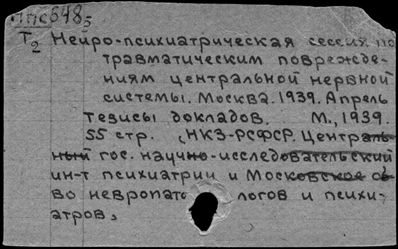 ППС648₅
Т₂ Нейро-психиатрическая сессия по
травматическим поврежде-
ниям центральной нервной
системы. Москва. 1939. Апрель
Тезисы докладов. М., 1939.
55 стр. (НКЗ-РСФСР. Централь-
ный гос. научно-исследовательский
ин-т психиатрии и Московское об-
во невропатологов и психи-
атров.